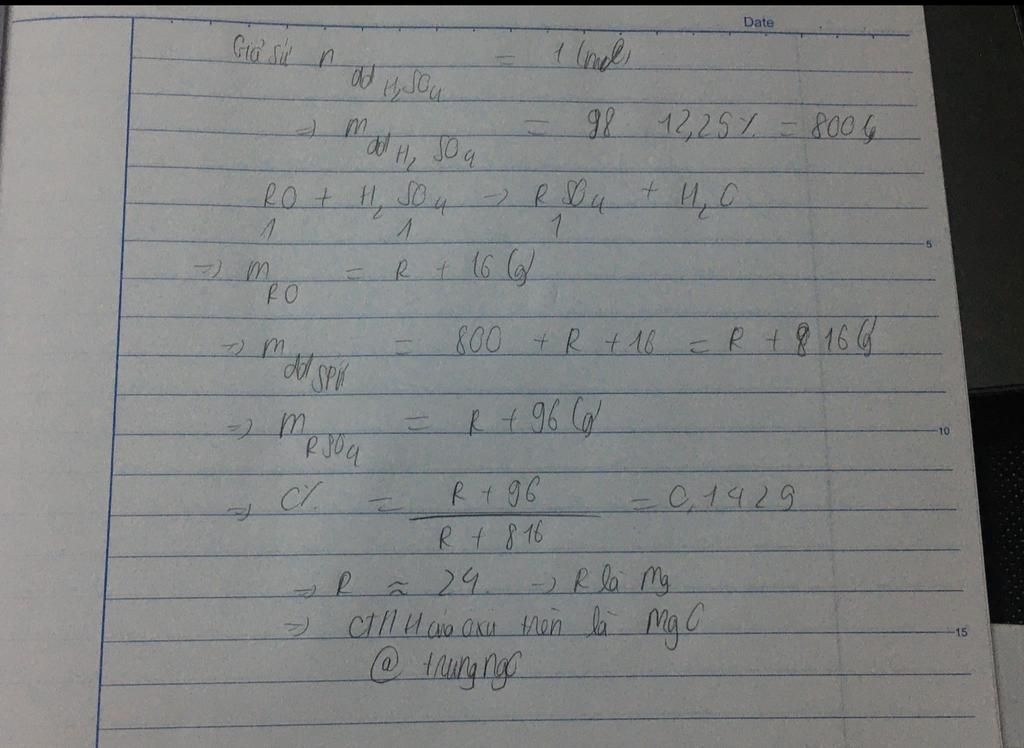 Date
Giả sử n dd H2SO4 = 1 (mol)
=> m dd H2SO4 = 98 12,25% = 800 g
RO + H2SO4 -> RSO4 + H2O
1 1 1
5
=> m RO = R + 16 (g)
=> m dd SPỨ = 800 + R + 16 = R + 816 (g)
=> m RSO4 = R + 96 (g)
10
=> C% = R + 96 / R + 816 = 0,1429
=> R ≈ 24 -> R là Mg
=> CTHH của oxit trên là MgO
15
@ trungngo